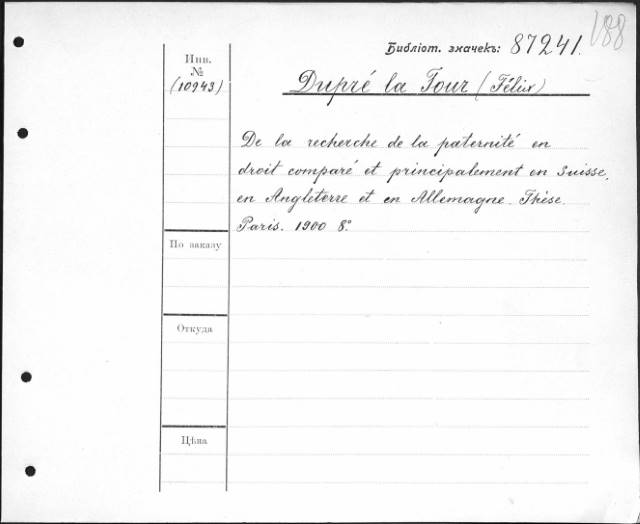 Библіот. значекъ: 87241.
V88
Инв.
№
(10943)
Dupré la Tour (Félix)
De la recherche de la paternité en
droit comparé et principalement en Suisse,
en Angleterre et en Allemagne. Thèse.
Paris. 1900 8°.
По заказу
Откуда
Цѣна